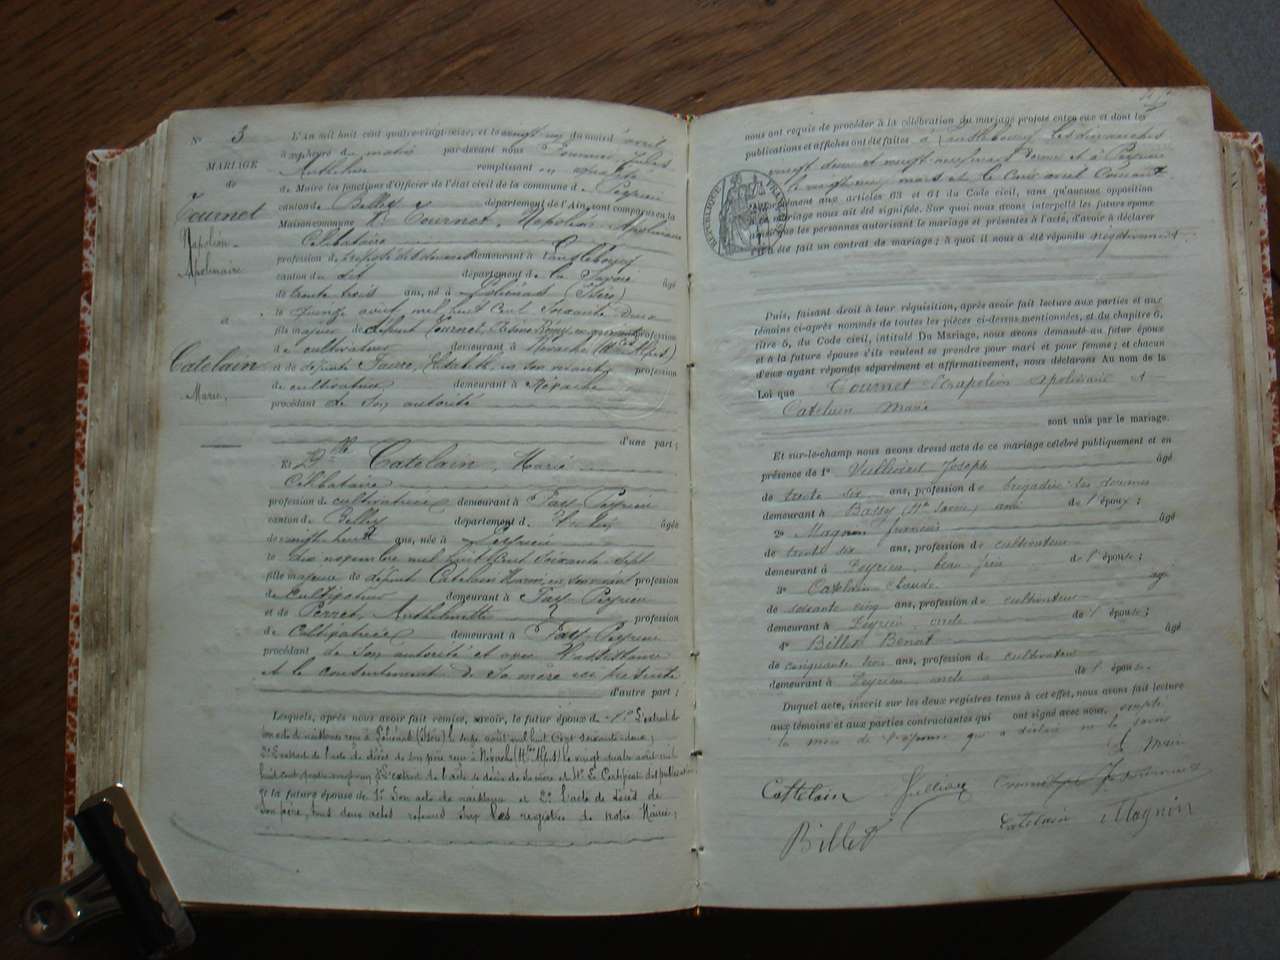 N° 3
MARIAGE
de
Tournet
Napoléon
Apolinaire
a
Catelain
Marie,
L'An mil huit cent quatre-vingt-seize, et le vingt un du mois d' avril
à heure du matin par devant nous Pommier, Jules
Anthelme remplissant en
de Maire les fonctions d'Officier de l'état civil de la commune de Peyrieu
canton de Belley département de l'Ain, sont comparus en la
Maison commune Mr Tournet, Napoléon Apolinaire
Célibataire
profession de Préposé des douanes demeurant à
canton du département de la Savoie âgé
de trente trois ans, né à (Isère)
le août mil huit cent soixante deux
fils majeur de défunt Tournet, profession
de cultivateur demeurant à Névache (Htes Alpes)
et de défunte Faure, Elisabeth, en son vivant profession
de cultivatrice demeurant à Névache
procédant de son autorité
d'une part ;
Et Dlle Catelain, Marie
Célibataire
profession de cultivatrice demeurant à Fay-Peyrieu
canton de Belley département de l'Ain âgée
de vingt huit ans, née à Peyrieu
le dix novembre mil huit cent soixante sept
fille majeure de défunt Catelain en son vivant profession
de cultivateur demeurant à Fay-Peyrieu
et de Perret, Anthelmette profession
de cultivatrice demeurant à Fay-Peyrieu
procédant de son autorité et avec l'assistance
et le consentement de sa mère ici présente
d'autre part ;
Lesquels, après nous avoir fait remise, savoir, le futur époux de 1° L'extrait de
son acte de naissance reçu à (Isère) le août mil huit cent soixante deux ;
2° Extrait de l'acte de décès de son père reçu à Névache (Htes Alpes) le vingt quatre août mil
huit cent quatre vingt 3° L'extrait de l'acte de décès de sa mère et 4° Le Certificat de publication
Et la future épouse de 1° Son acte de naissance et 2° L'acte de décès de
son père, tous deux actes relevés sur les registres de notre Mairie ;
nous ont requis de procéder à la célébration du mariage projeté entre eux et dont les
publications et affiches ont été faites à les dimanches
vingt deux et vingt neuf mars dernier et à Peyrieu
le vingt neuf mars et le cinq avril courant
conformément aux articles 63 et 64 du Code civil, sans qu'aucune opposition
à ce mariage nous ait été signifiée. Sur quoi nous avons interpellé les futurs époux
ainsi que les personnes autorisant le mariage et présentes à l'acte, d'avoir à déclarer
s'il a été fait un contrat de mariage ; à quoi il nous a été répondu négativement.
RÉPUBLIQUE FRANÇAISE
Puis, faisant droit à leur réquisition, après avoir fait lecture aux parties et aux
témoins ci-après nommés de toutes les pièces ci-dessus mentionnées, et du chapitre 6,
titre 5, du Code civil, intitulé Du Mariage, nous avons demandé au futur époux
et à la future épouse s'ils veulent se prendre pour mari et pour femme ; et chacun
d'eux ayant répondu séparément et affirmativement, nous déclarons Au nom de la
Loi que Tournet Napoléon Apolinaire et
Catelain Marie
sont unis par le mariage.
Et sur-le-champ nous avons dressé acte de ce mariage célébré publiquement et en
présence de 1° Vulliez Joseph âgé
de trente six ans, profession de brigadier des douanes
demeurant à Bassy (Hte Savoie) ami de l'époux ;
2° Magnin François âgé
de trente six ans, profession de cultivateur
demeurant à Peyrieu, beau frère de l'épouse ;
3° Catelain Claude âgé
de soixante cinq ans, profession de cultivateur
demeurant à Peyrieu, oncle de l'épouse ;
4° Billet Benoit âgé
de cinquante trois ans, profession de cultivateur
demeurant à Peyrieu, oncle de l'épouse.
Duquel acte, inscrit sur les deux registres tenus à cet effet, nous avons fait lecture
aux témoins et aux parties contractantes qui ont signé avec nous, excepté
la mère de l'épouse qui a déclaré ne le savoir
Le Maire
Cattelain Vulliez
Billet Catelain Magnin